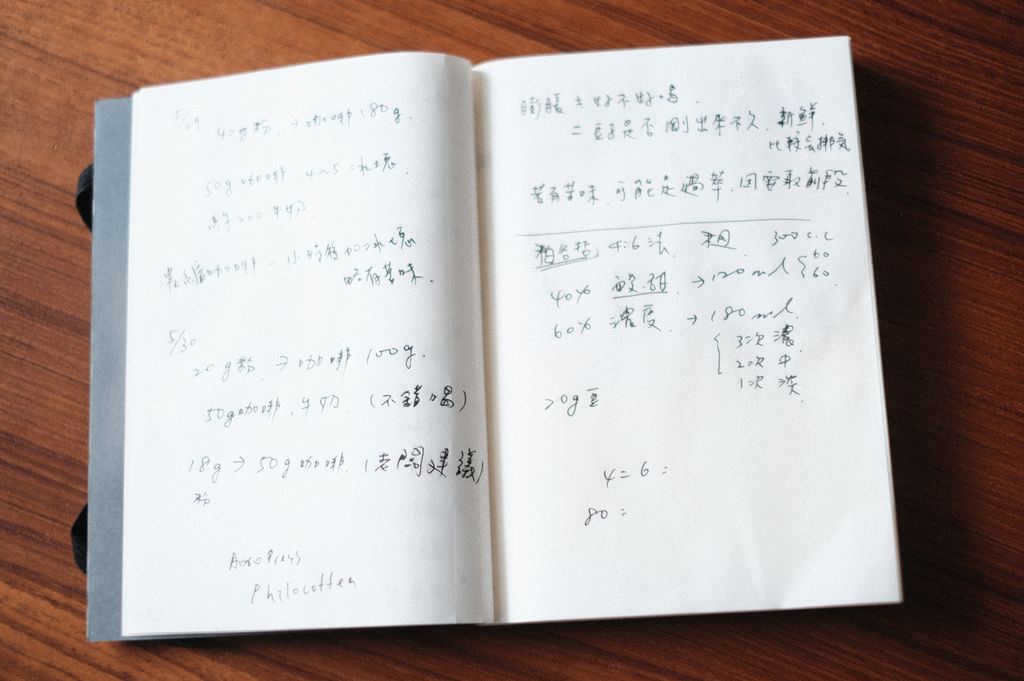 5/29
40g粉 → 咖啡 180g.
50g 咖啡 4~5 冰塊.
200 牛奶
咖啡 一小時後加冰塊
略有苦味.
5/30
20g粉 → 咖啡 100g.
50g咖啡 牛奶 (不錯喝)
18g → 50g咖啡. (老闆建議)
粉
AeroPress
Philocoffea
膨脹 ≠ 好不好喝.
= 豆子是否剛出來不久. 新鮮,
比較會排氣
若有苦味 可能是過萃. 只要取前段
粕谷哲 4:6法 粗 300 c.c
40% 酸.甜 → 120 ml { 60
60
60% 濃度 → 180 ml.
{ 3次 濃
2次 中
1次 淡
20g 豆
4 = 6 =
80 =